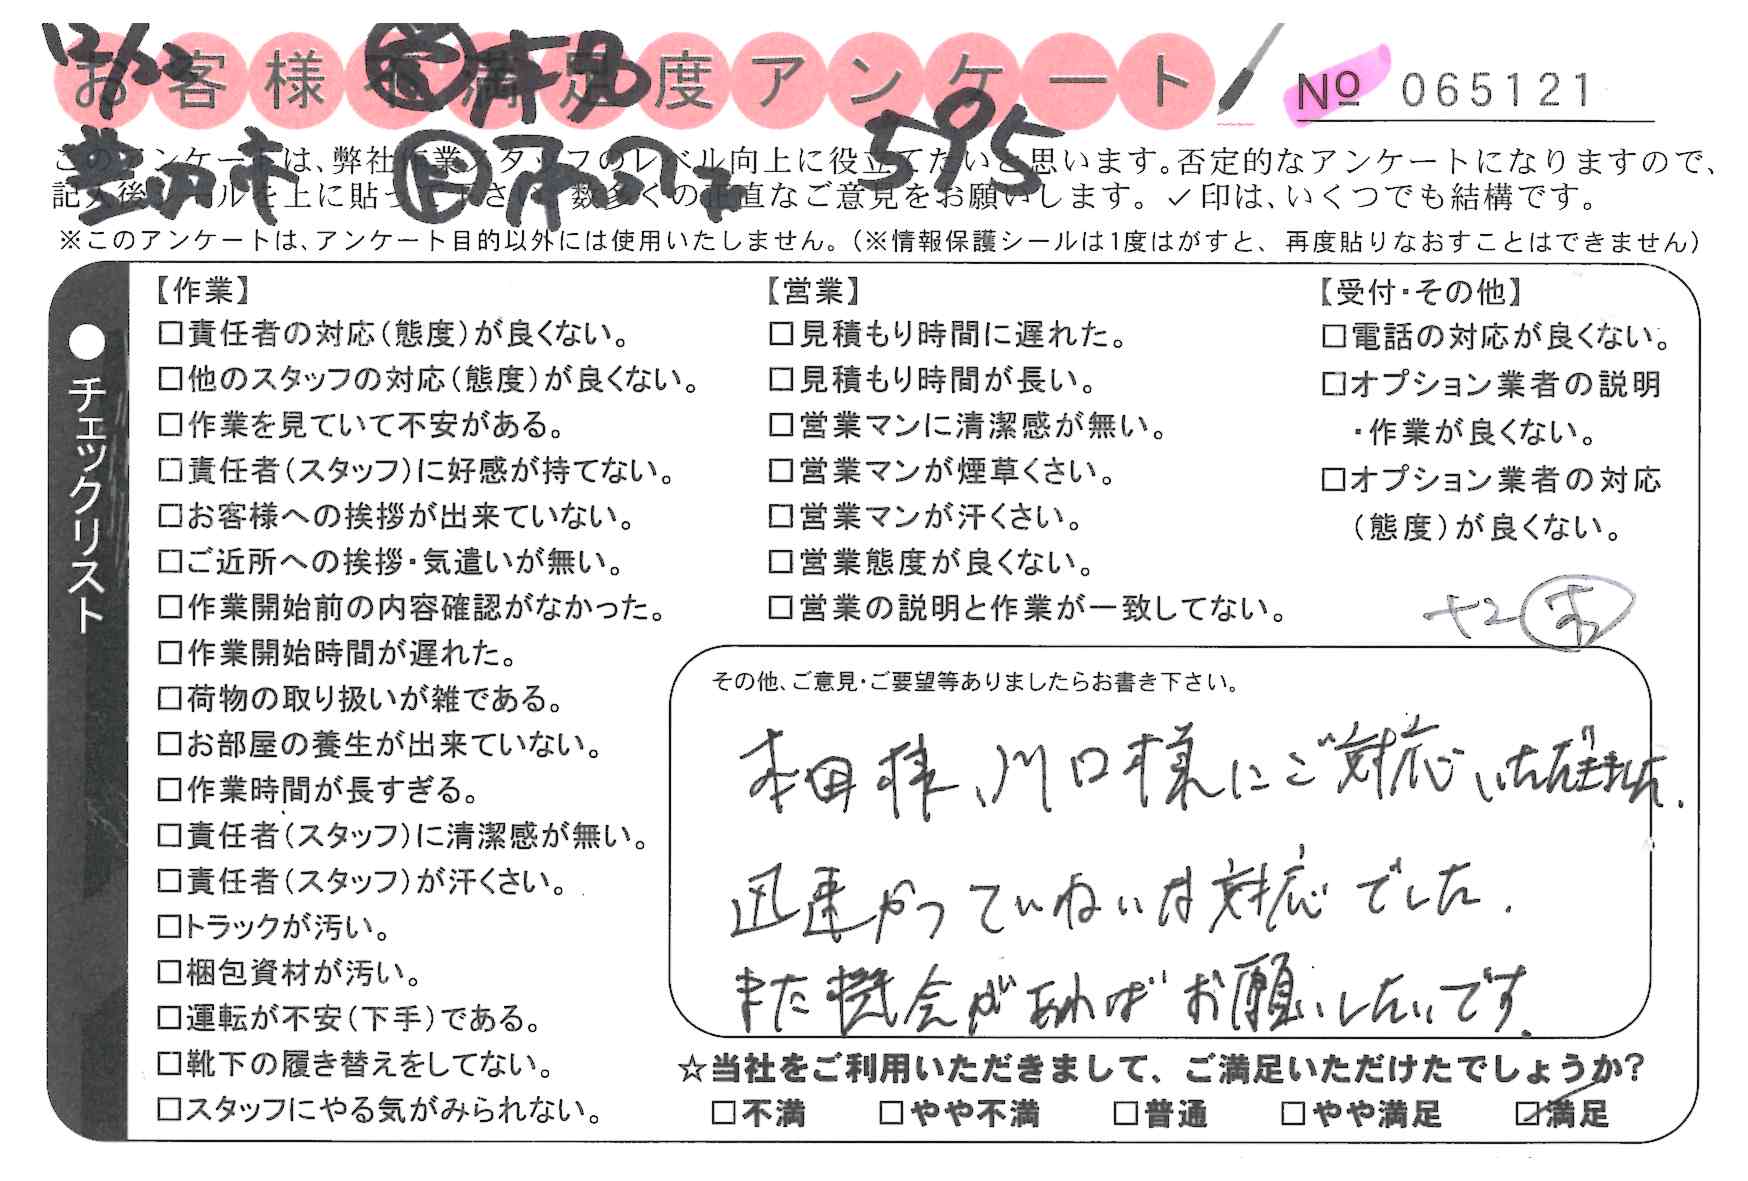 お客様不満足度アンケート
№ 065121
豊田市
595
このアンケートは、弊社作業スタッフのレベル向上に役立てたいと思います。否定的なアンケートになりますので、
記入後シールを上に貼って下さい。数多くの正直なご意見をお願いします。✓印は、いくつでも結構です。
※このアンケートは、アンケート目的以外には使用いたしません。(※情報保護シールは1度はがすと、再度貼りなおすことはできません)
●チェックリスト
【作業】
□責任者の対応(態度)が良くない。
□他のスタッフの対応(態度)が良くない。
□作業を見ていて不安がある。
□責任者(スタッフ)に好感が持てない。
□お客様への挨拶が出来ていない。
□ご近所への挨拶・気遣いが無い。
□作業開始前の内容確認がなかった。
□作業開始時間が遅れた。
□荷物の取り扱いが雑である。
□お部屋の養生が出来ていない。
□作業時間が長すぎる。
□責任者(スタッフ)に清潔感が無い。
□責任者(スタッフ)が汗くさい。
□トラックが汚い。
□梱包資材が汚い。
□運転が不安(下手)である。
□靴下の履き替えをしてない。
□スタッフにやる気がみられない。
【営業】
□見積もり時間に遅れた。
□見積もり時間が長い。
□営業マンに清潔感が無い。
□営業マンが煙草くさい。
□営業マンが汗くさい。
□営業態度が良くない。
□営業の説明と作業が一致してない。
【受付・その他】
□電話の対応が良くない。
□オプション業者の説明
・作業が良くない。
□オプション業者の対応
(態度)が良くない。
+2
その他、ご意見・ご要望等ありましたらお書き下さい。
本田様、川口様にご対応いただきました.
迅速かつていねいな対応でした.
また機会があればお願いしたいです.
☆当社をご利用いただきまして、ご満足いただけたでしょうか?
□不満 □やや不満 □普通 □やや満足 ☑満足